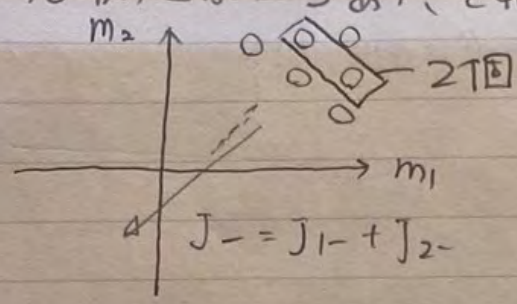 m₂
2個
m₁
J₋ = J₁₋ + J₂₋